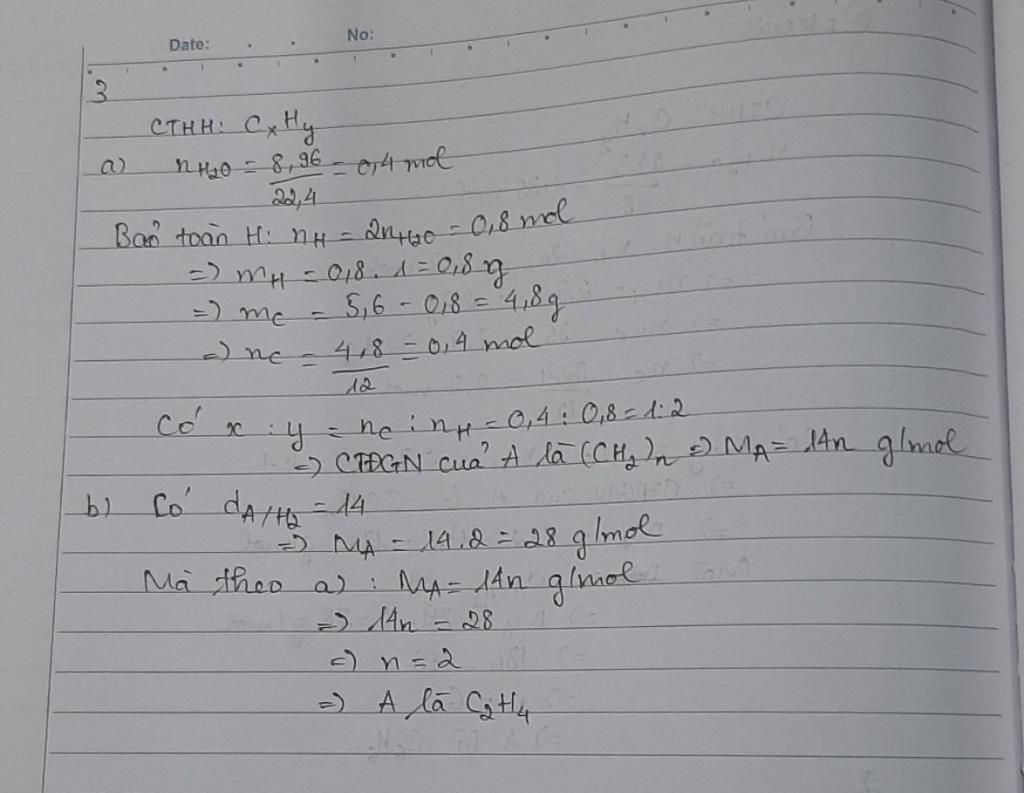 Date: No:
3
CTHH: CxHy
a) nH2O = 8,96/22,4 = 0,4 mol
Bảo toàn H: nH = 2nH2O = 0,8 mol
=> mH = 0,8 . 1 = 0,8 g
=> mC = 5,6 - 0,8 = 4,8g
=> nC = 4,8/12 = 0,4 mol
Có x : y = nC : nH = 0,4 : 0,8 = 1:2
=> CTĐGN của A là (CH2)n => MA = 14n g/mol
b) Có dA/H2 = 14
=> MA = 14.2 = 28 g/mol
Mà theo a) : MA = 14n g/mol
=> 14n = 28
=> n = 2
=> A là C2H4